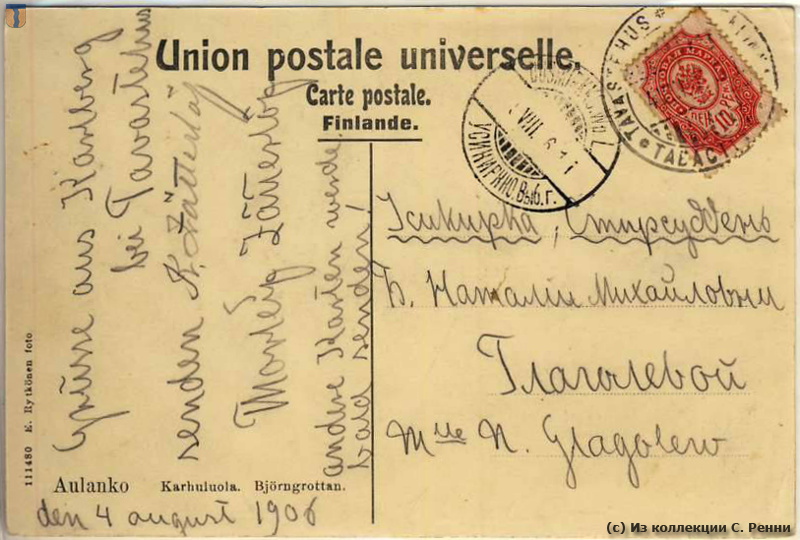 Union postale universelle.
Carte postale.
Finlande.
УСИКИРККО. Выб. г.
VIII 6
TAVASTEHUS
10 ПЕН
Усикирка, Стирсуддень
Е. В. Наталіи Михайловны
Глаголевой
Mlle N. Glagolew
Grüsse aus Karlberg
bei Tavastehus
senden
andere Karten werde
bald senden!
111480 E. Rytkönen foto
Aulanko Karhuluola. Björngrottan.
den 4 august 1906
(c) Из коллекции С. Ренни